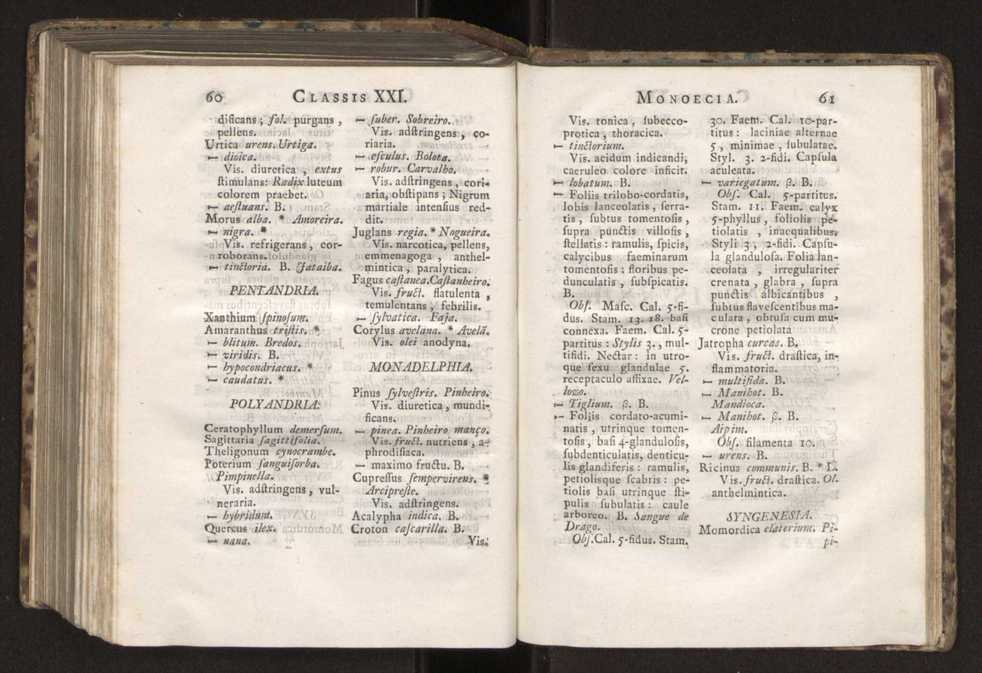 60 CLASSIS XXI.
dificans ; ſol. purgans ,
pellens.
Urtica urens. Urtiga.
— dioica.
Vis. diuretica , extus
ſtimulans: Radix luteum
colorem praebet.
— aeſtuans. B.
Morus alba. * Amoreira.
— nigra. *
Vis. refrigerans , cor-
roborans.
— tinctoria. B. Tataiba.
PENTANDRIA.
Xanthium ſpinoſum.
Amaranthus triſtis. *
— blitum. Bredos.
— viridis. B.
— hypocondriacus. *
— caudatus. *
POLYANDRIA.
Ceratophyllum demerſum.
Sagittaria ſagittifolia.
Theligonum cynocrambe.
Poterium ſanguiſorba.
Pimpinella.
Vis. adſtringens , vul-
neraria.
— hybridum.
Quercus ilex.
— nana.
— ſuber. Sobreiro.
Vis. adſtringens , co-
riaria.
— eſculus. Boleta.
— robur. Carvalho.
Vis. adſtringens , cori-
aria, obſtipans ; Nigrum
martiale intenſius red-
dit.
Juglans regia. * Nogueira.
Vis. narcotica, pellens,
emmenagoga , anthel-
mintica , paralytica.
Fagus caſtanea. Caſtanheiro.
Vis. fruct. flatulenta ,
temulentans , febrilis.
— ſylvatica. Faja.
Corylus avelana. * Avelã.
Vis. olei anodyna.
MONADELPHIA.
Pinus ſylveſtris. Pinheiro.
Vis. diuretica , mundi-
ficans.
— pinea. Pinheiro manço.
Vis. fruct. nutriens , a-
phrodiſiaca.
— maximo fructu. B.
Cupreſſus ſempervireus. *
Arcipreſte.
Vis. adſtringens.
Acalypha indica. B.
Croton caſcarilla. B.
Vis.
MONOECIA. 61
Vis. tonica , ſubecco-
protica , thoracica.
— tinctorium.
Vis. acidum indicandi,
caeruleo colore inficit.
— lobatum. B.
— Foliis trilobo-cordatis,
lobis lanceolatis , ſerra-
tis , ſubtus tomentoſis ,
ſupra punctis villoſis ,
ſtellatis : ramulis, ſpicis,
calycibus faeminarum
tomentoſis : floribus pe-
dunculatis , ſubſpicatis.
B.
Obſ. Maſc. Cal. 5-fi-
dus. Stam. 13. 18. baſi
connexa. Faem. Cal. 5-
partitus : Stylis 3. , mul-
tifidi. Nectar : in utro-
que ſexu glandulae 5.
receptaculo affixae. Vel-
loſo.
— Tiglium. β. B.
— Foliis cordato-acumi-
natis , utrinque tomen-
toſis , baſi 4-glanduloſis,
ſubdenticulatis, denticu-
lis glandiferis : ramulis,
petioliſque ſcabris : pe-
tiolis baſi utrinque ſti-
pulis ſubulatis : caule
arboreo. B. Sangue de
Drago.
Obſ. Cal. 5-fidus. Stam.
30. Faem. Cal. 10-par-
titus : laciniae alternae
5 , minimae , ſubulatae.
Styl. 3. 2-fidi. Capſula
aculeata.
— variegatum. β. B.
Obſ. Cal. 5-partitus.
Stam. 11. Faem. calyx
5-phyllus , foliolis pe-
tiolatis , inaequalibus.
Styli 3 , 2-fidi. Capſu-
la glanduloſa. Folia lan-
ceolata , irregulariter
crenata , glabra , ſupra
punctis albicantibus ,
ſubtus flaveſcentibus ma-
culata , obtuſa cum mu-
crone petiolata
Jatropha curcas. B.
Vis. fruct. draſtica, in-
flammatoria.
— multifida. B.
— Manihot. B.
Mandioca.
— Manihot. β. B.
Aipim.
Obſ. filamenta 10.
— urens. B.
Ricinus communis. B. * L.
Vis. fruct. draſtica. Ol.
anthelmintica.
SYNGENESIA.
Momordica elaterium. Pi-
pi-